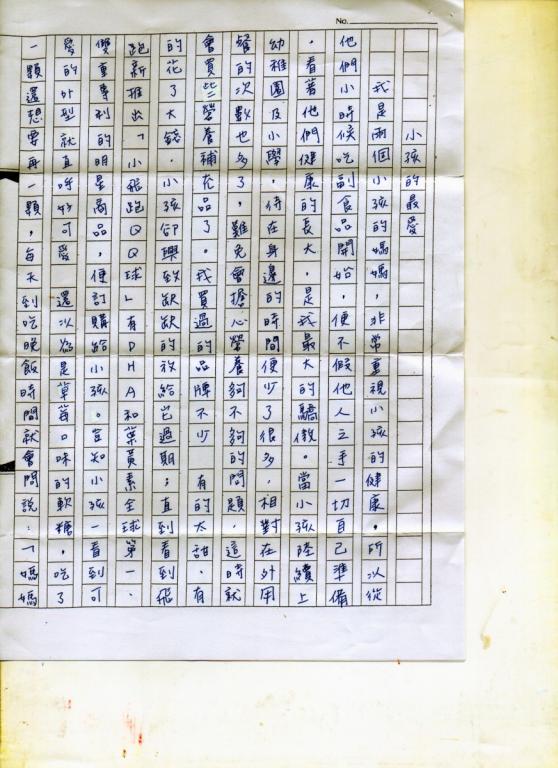 No.
小孩的最愛
我是兩個小孩的媽媽，非常重視小孩的健康，所以從
他們小時候吃副食品開始，便不假他人之手一切自己準備
，看著他們健康的長大，是我最大的驕傲。當小孩陸續上
幼稚園及小學，待在身邊的時間便少了很多，相對在外用
餐的次數也多了，難免會擔心營養夠不夠的問題，這時就
會買些營養補充品了。我買過的品牌不少，有的太甜，有
的花了大錢，小孩卻興致缺缺的放給它過期；直到看到飛
跑新推出「小飛跑QQ球」有DHA和葉黃素全球第一，
雙重專利的明星商品，便訂購給小孩。豈知小孩一看到可
愛的外型就直呼好可愛，還以為是草莓口味的軟糖，吃了
一顆還想要再一顆，每天到吃晚飯時間就會問說：「媽媽